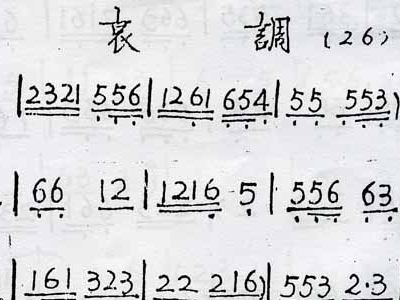 哀 調 (26)
|2321 556|1261 654|55 553)
|66 12|1216 5|556 63
|161 323|22 216)|553 2·3